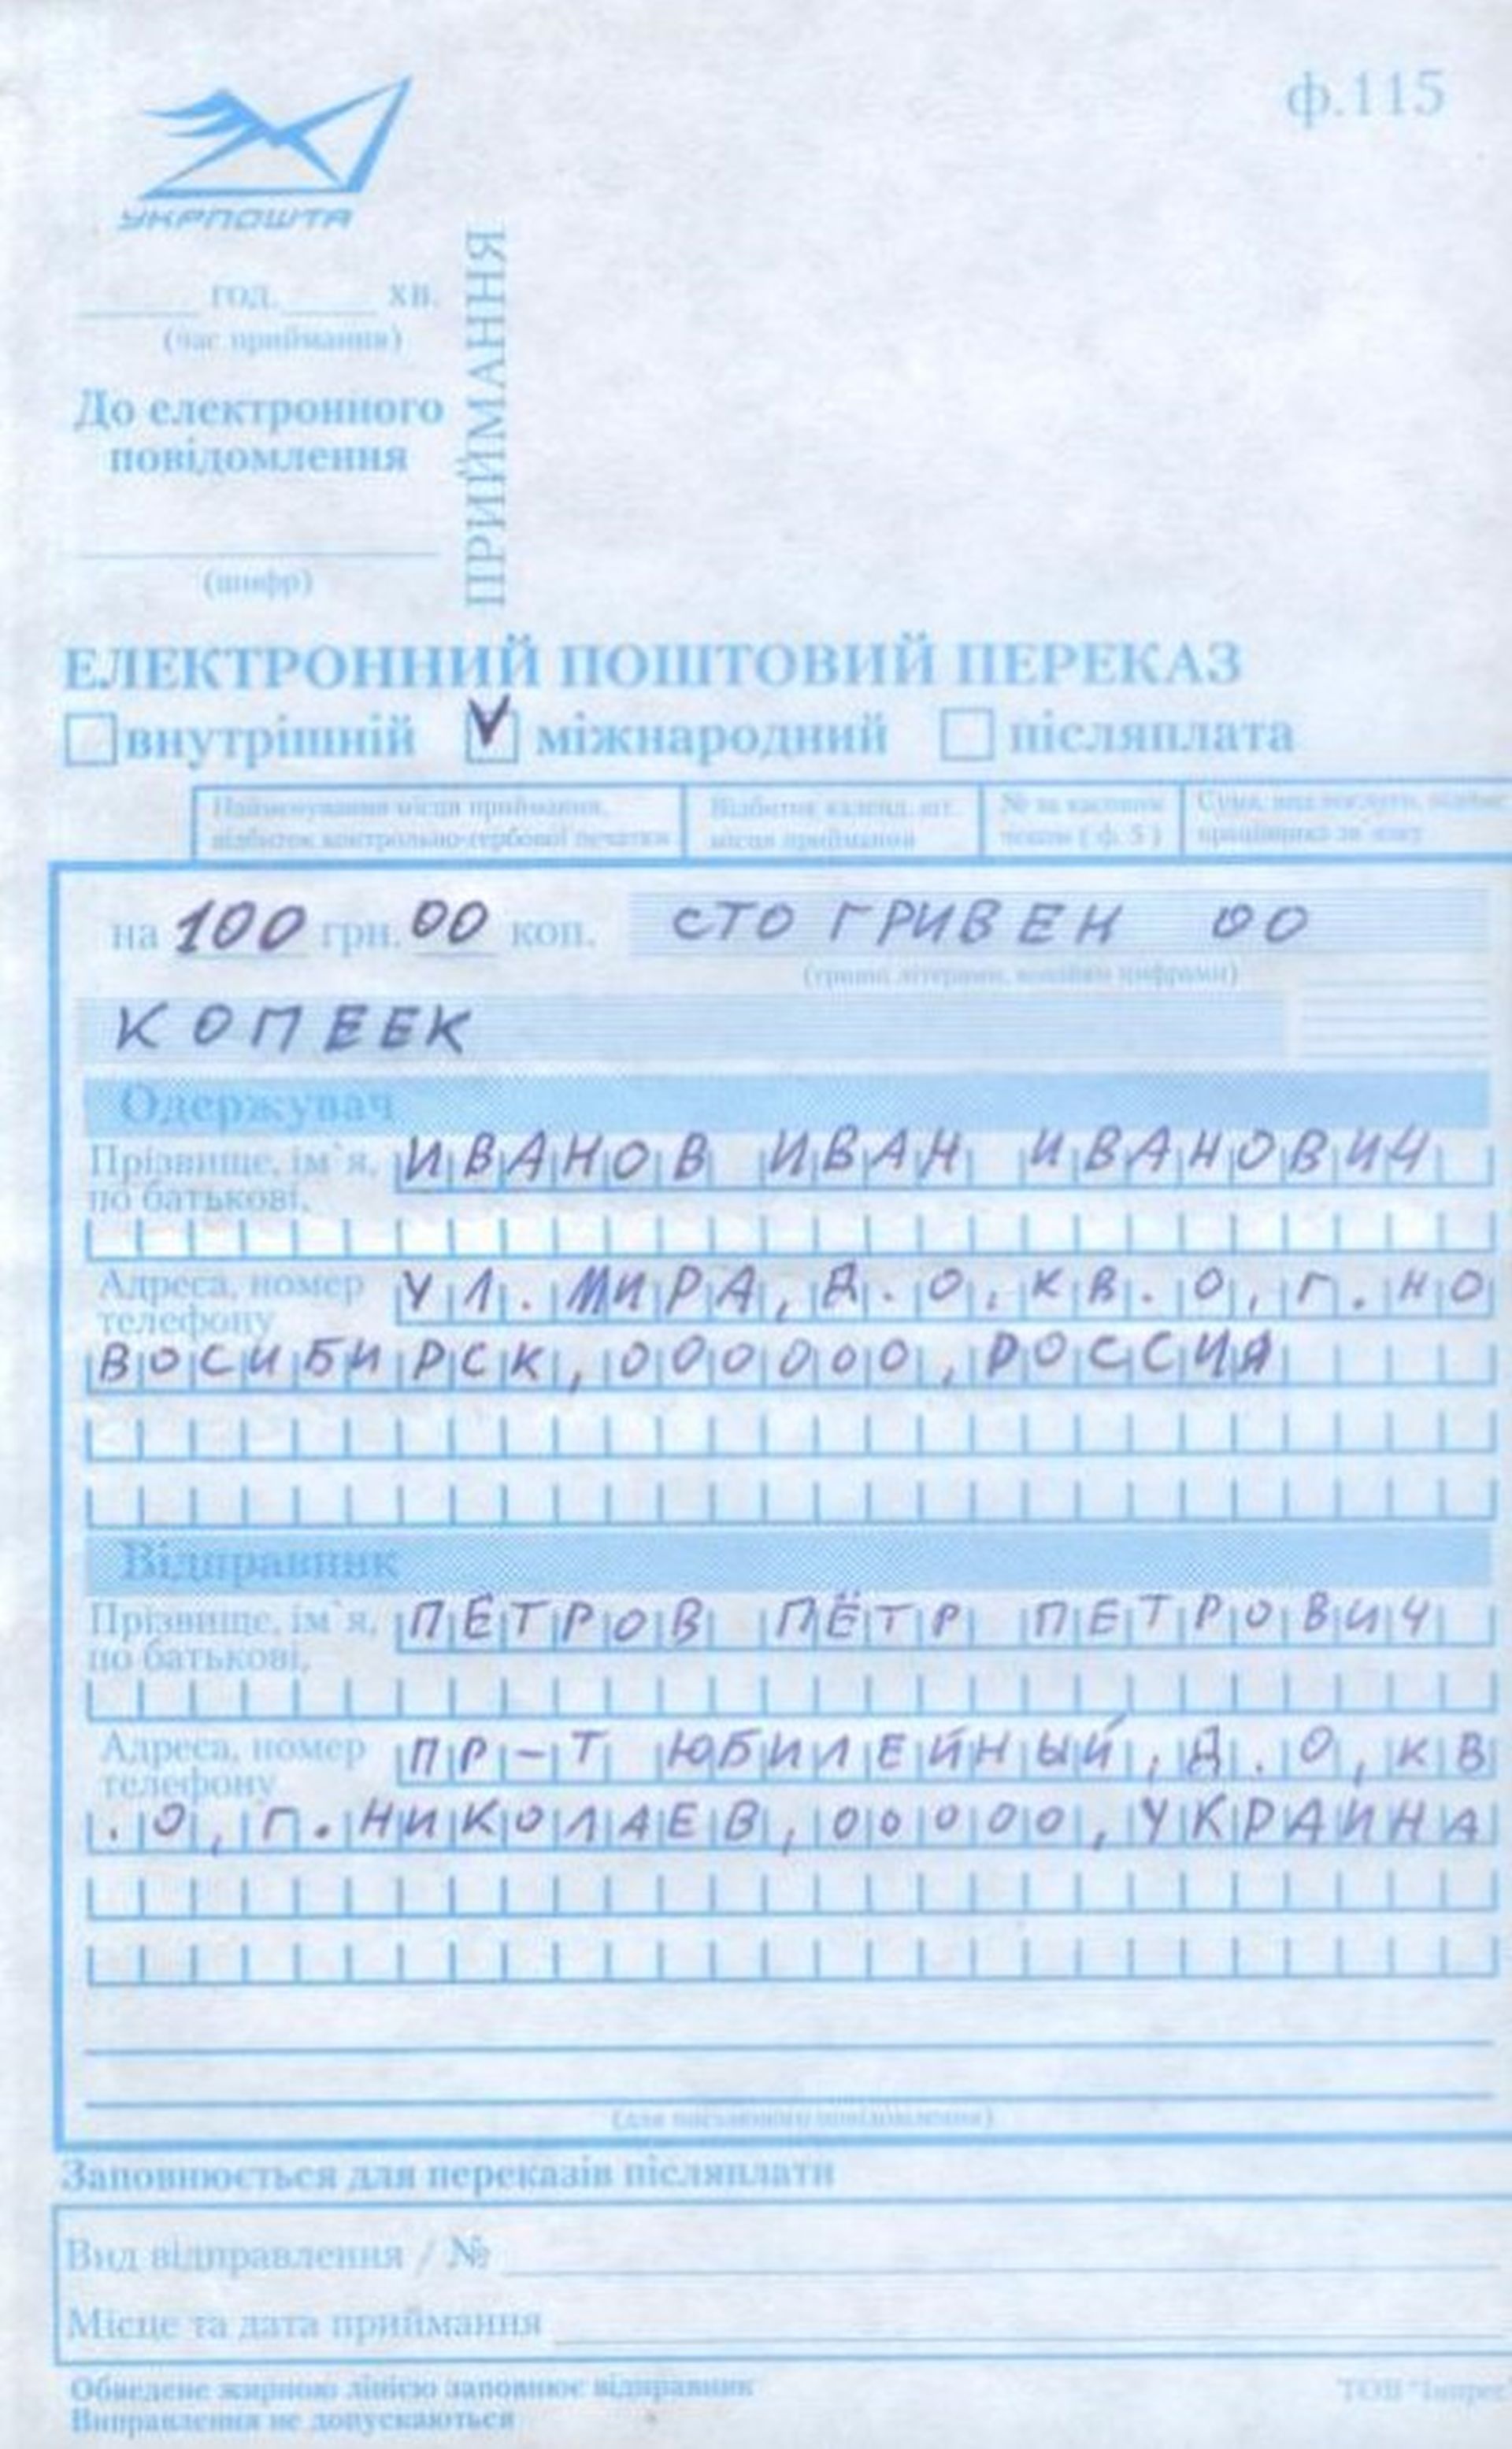 ф.115
УКРПОШТА
ПРИЙМАННЯ
год. хв.
(час приймання)
До електронного
повідомлення
(шифр)
ЕЛЕКТРОННИЙ ПОШТОВИЙ ПЕРЕКАЗ
внутрішній V міжнародний післяплата
Найменування місця приймання, Відбиток календ. шт. № за касовим Сума, вид послуги,
відбиток контрольно-гербової печатки місця приймання чеком ( ф. 5 ) працівника зв'язку
на 100 грн. 00 коп. СТО ГРИВЕН 00
(гривні літерами, копійки цифрами)
КОПЕЕК
Одержувач
Прізвище, ім`я, ИВАНОВ ИВАН ИВАНОВИЧ
по батькові,
Адреса, номер УЛ. МИРА, Д. 0, КВ. 0, Г. НО
телефону
ВОСИБИРСК, 000000, РОССИЯ
Відправник
Прізвище, ім`я, ПЕТРОВ ПЁТР ПЕТРОВИЧ
по батькові,
Адреса, номер ПР-Т ЮБИЛЕЙНЫЙ, Д. 0, КВ
телефону
. 0, Г. НИКОЛАЕВ, 00000, УКРАИНА
(для письмового повідомлення)
Заповнюється для переказів післяплати
Вид відправлення / №
Місце та дата приймання
Обведене жирною лінією заповнює відправник
Виправлення не допускаються
ТОВ